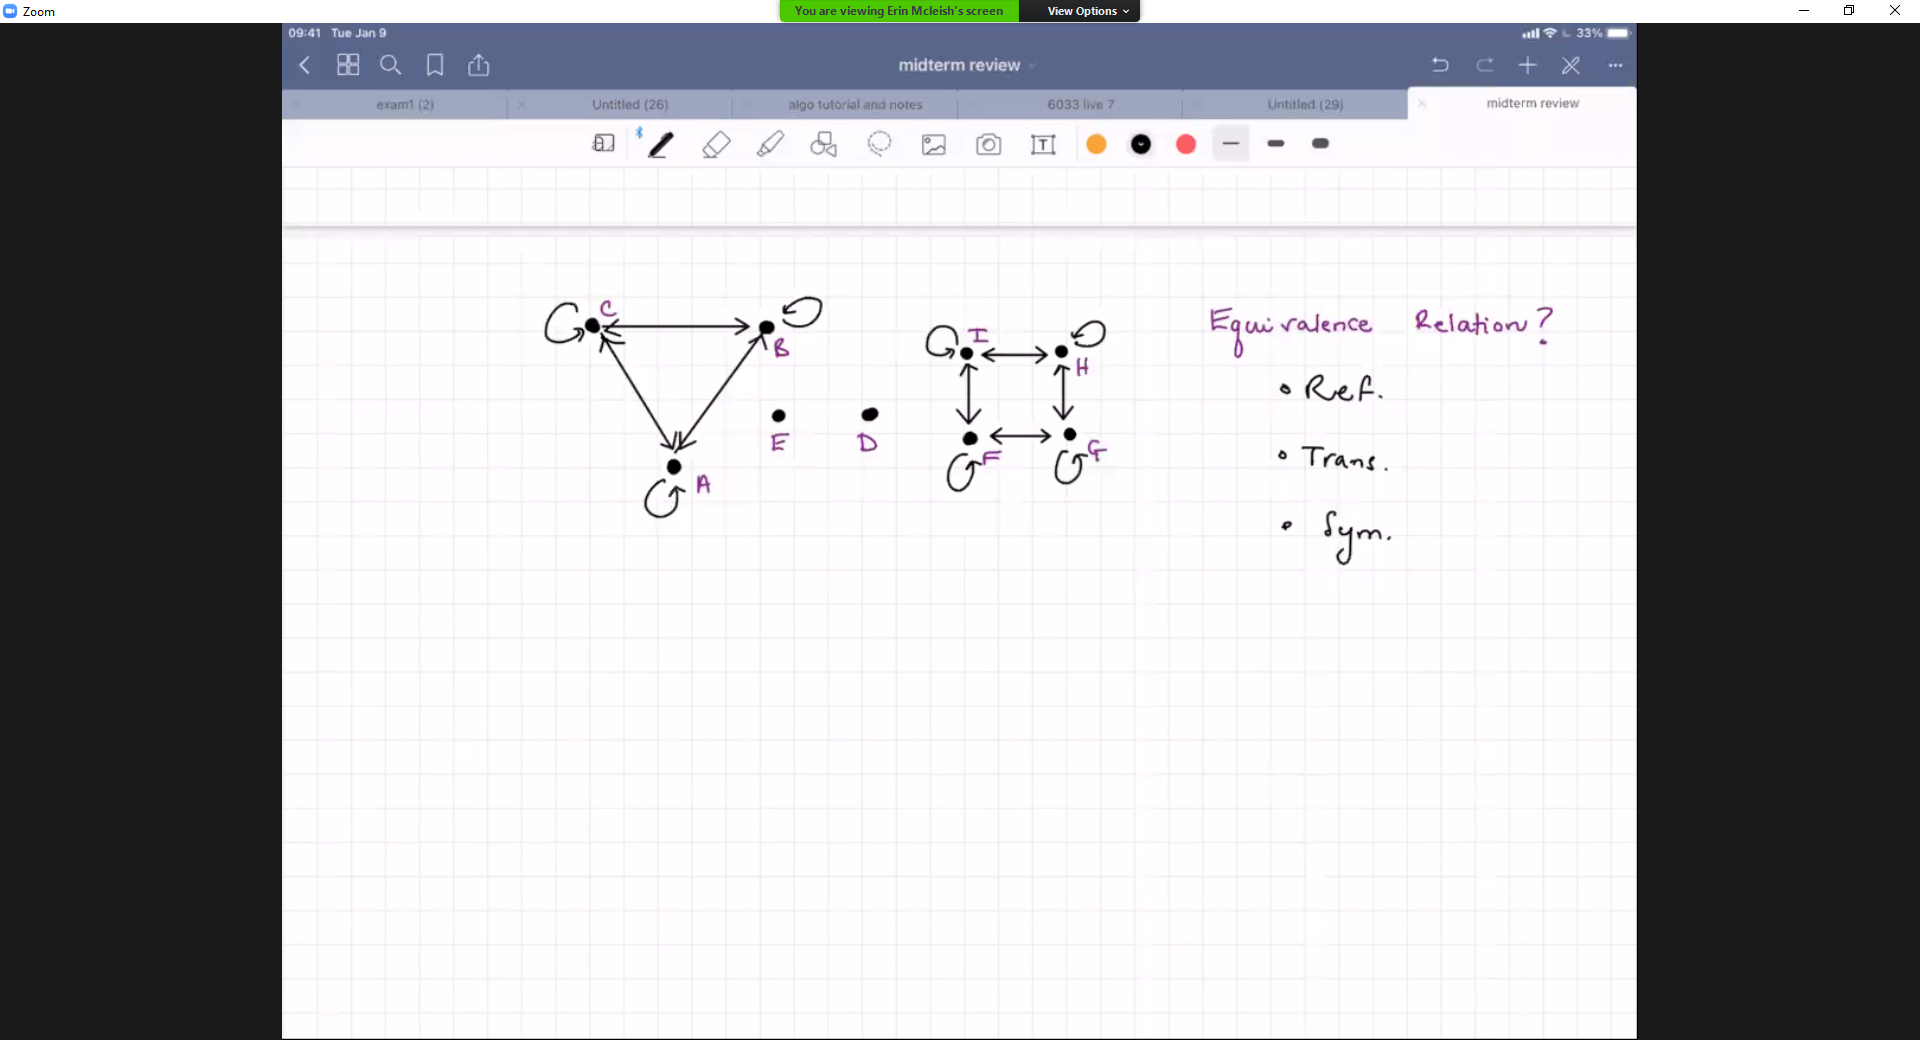 Zoom
You are viewing Erin Mcleish's screen View Options
09:41 Tue Jan 9
33%
midterm review
exam1 (2) Untitled (26) algo tutorial and notes 6033 live 7 Untitled (29) midterm review
T
C
B
I
H
E
D
F
G
A
Equivalence Relation?
• Ref.
• Trans.
• Sym.